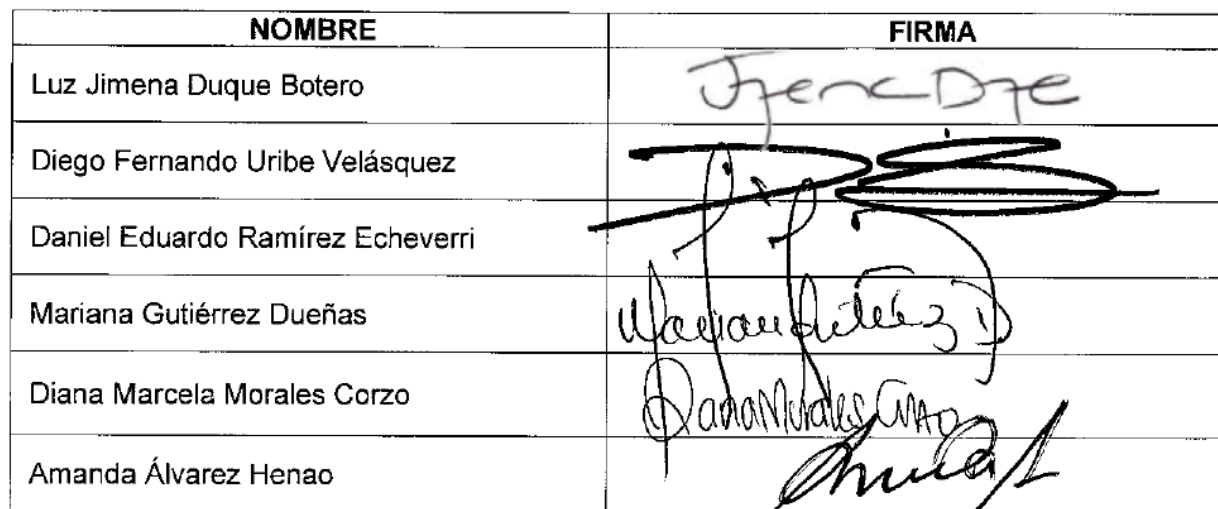 NOMBRE FIRMA
Luz Jimena Duque Botero
Diego Fernando Uribe Velásquez
Daniel Eduardo Ramírez Echeverri
Mariana Gutiérrez Dueñas Mariana Gutiérrez D
Diana Marcela Morales Corzo Diana Morales Corzo
Amanda Álvarez Henao